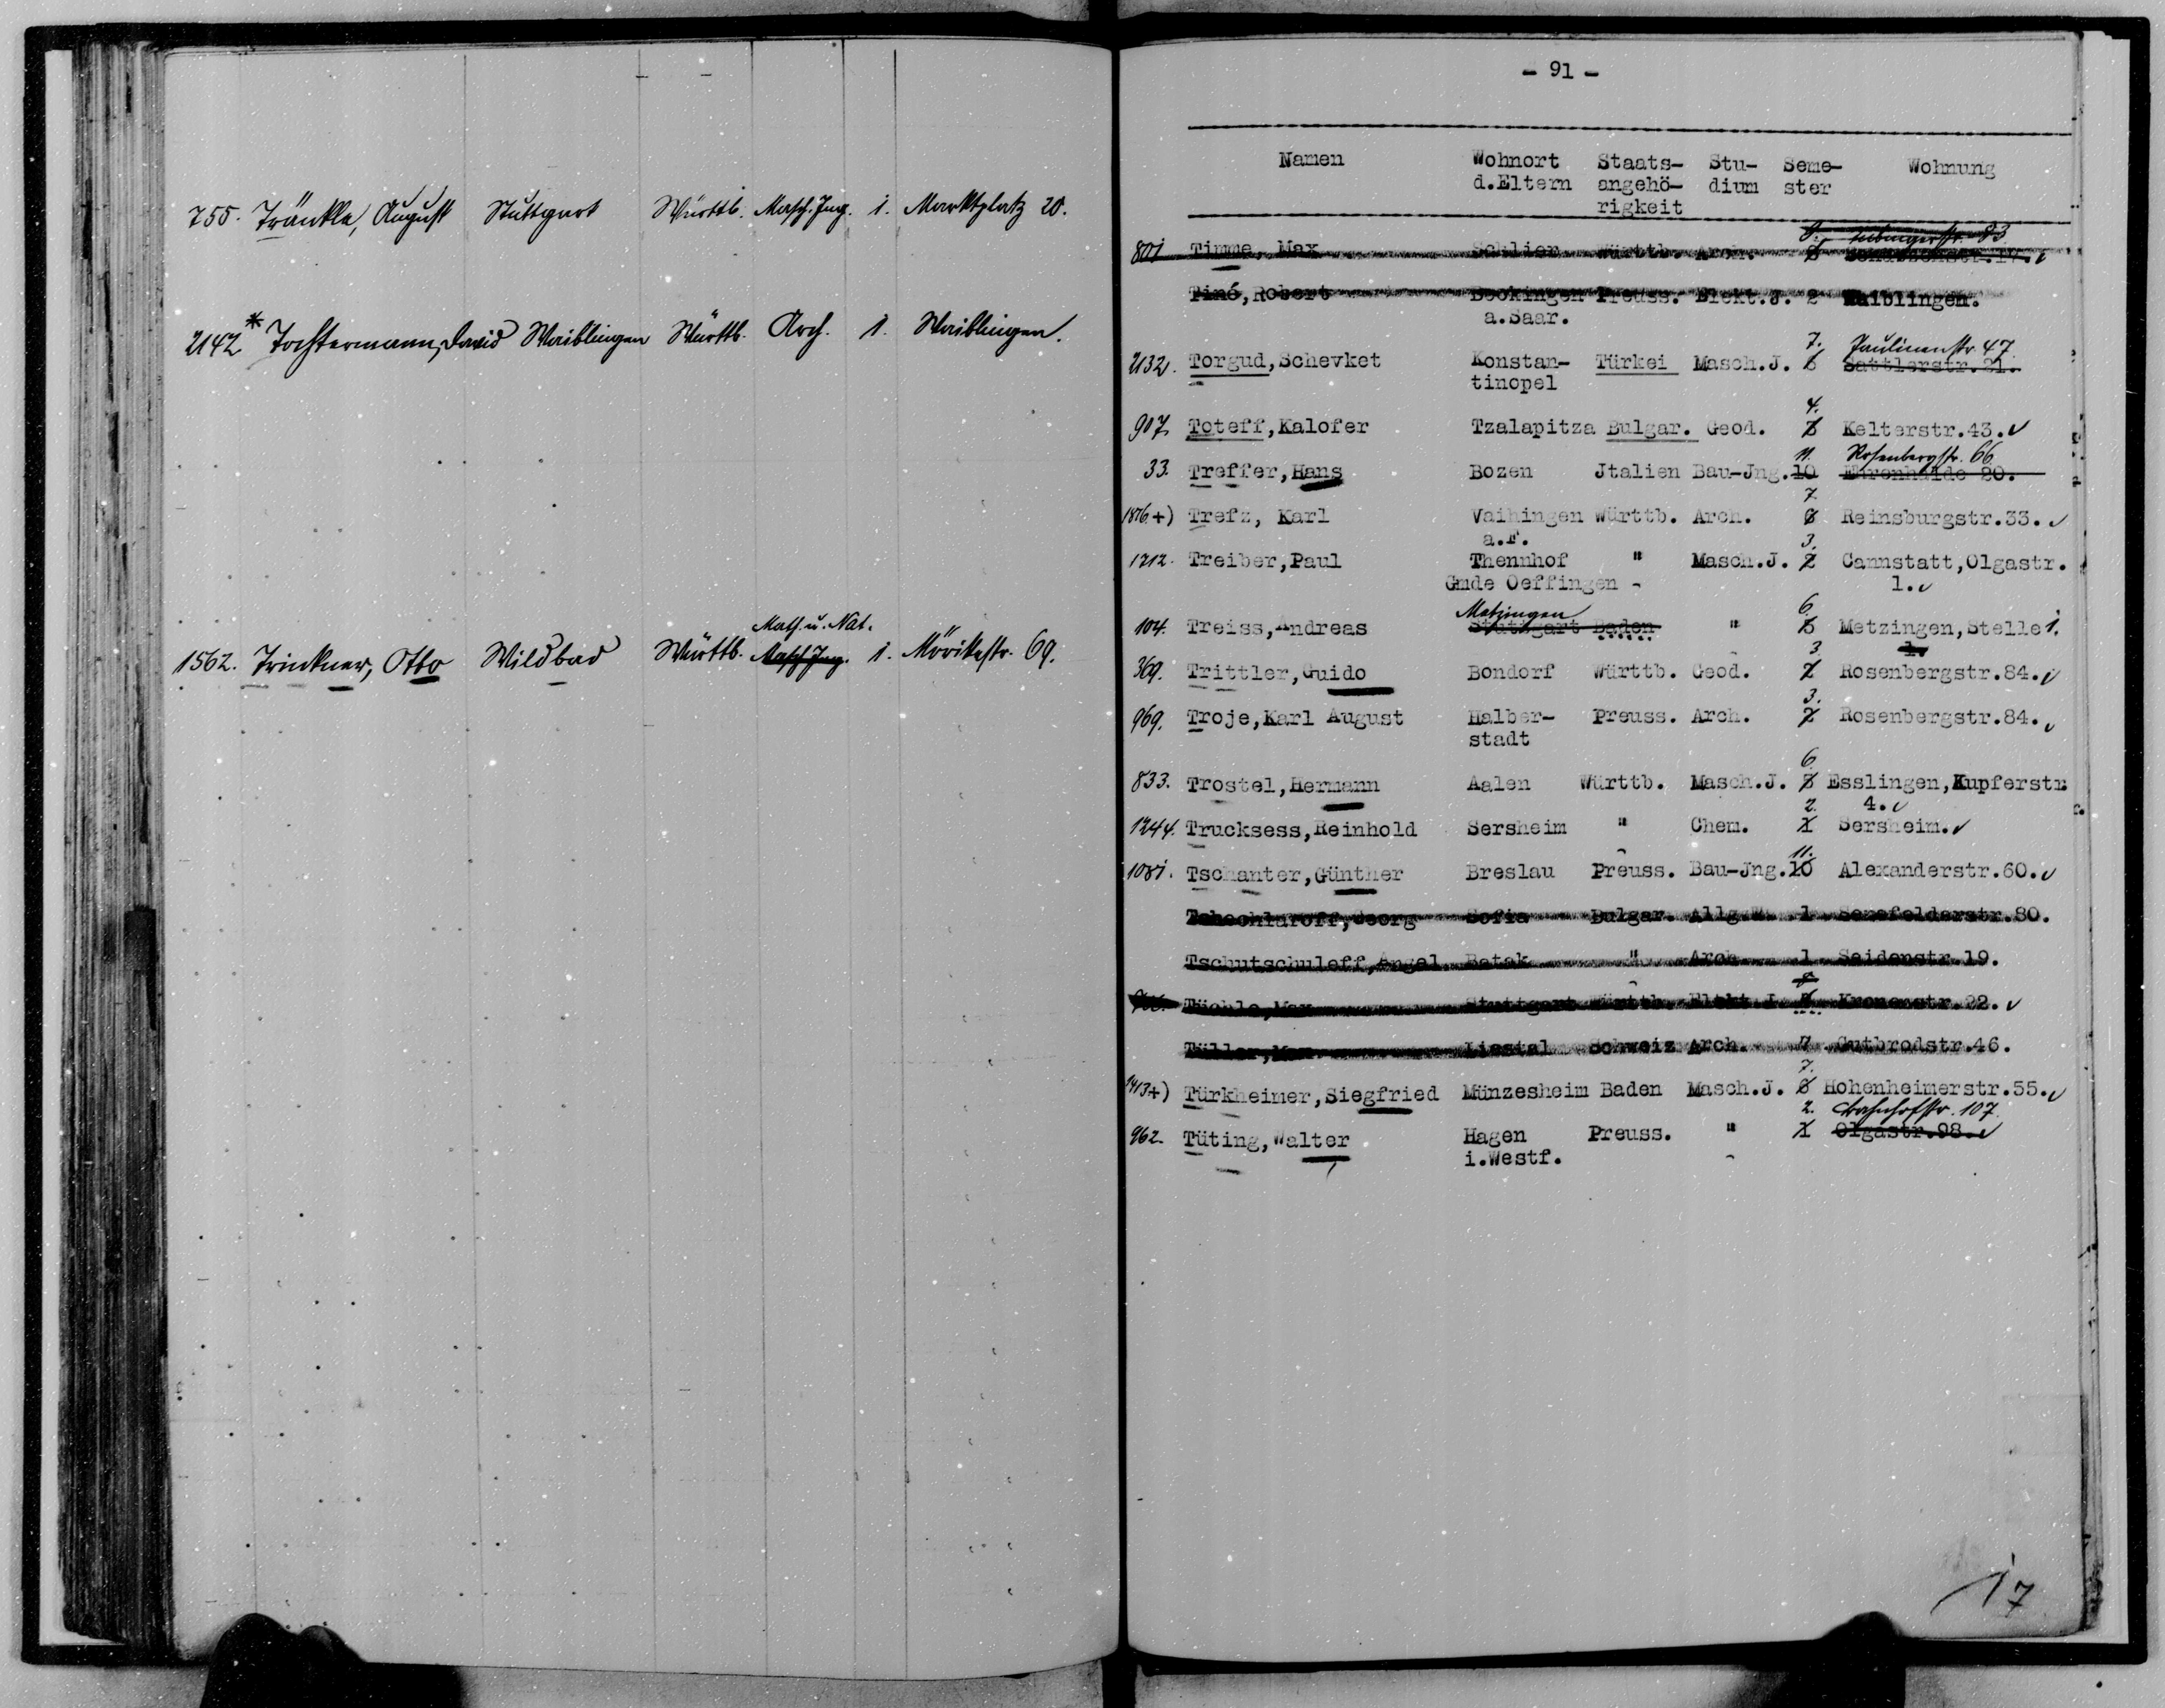 755. Tränkle, August Stuttgart Württb. Masch. Ing. 1. Marktplatz 20.
2142* Tochtermann, David Waiblingen Württb. Arch. 1. Waiblingen.
Math. u. Nat.
1562. Trinkner, Otto Wildbad Württb. Masch. Ing. 1. Mörikestr. 69.
- 91 -
Namen Wohnort Staats- Stu- Seme- Wohnung
d.Eltern angehö- dium ster
rigkeit
Tübingerstr. 83
801 Timme, Max Schlier Württb. Arch.
Tiné, Robert Beckingen Preuss. Elekt.J. 2 Waiblingen.
a.Saar.
7. Paulinenstr. 47
2132. Torgud, Schevket Konstan- Türkei Masch.J. 6 Sattlerstr.21.
tinopel
4.
907. Toteff, Kalofer Tzalapitza Bulgar. Geod. 3 Kelterstr.43.
11. Rosenbergstr. 66
33. Treffer, Hans Bozen Jtalien Bau-Jng. 10 20.
7
1876 +) Trefz, Karl Vaihingen Württb. Arch. 6 Reinsburgstr.33.
a.F. 3.
1212. Treiber, Paul Thennhof " Masch.J. 2 Cannstatt, Olgastr.
Gmde Oeffingen - 1.
Metzingen 6.
104. Treiss, Andreas Stuttgart Baden " 5 Metzingen, Stelle 1.
3. 1.
369. Trittler, Guido Bondorf Württb. Geod. 2 Rosenbergstr.84.
3.
969. Troje, Karl August Halber- Preuss. Arch. 2 Rosenbergstr.84.
stadt
6.
833. Trostel, Hermann Aalen Württb. Masch.J. 5 Esslingen, Kupferstr.
2. 4.
1244. Trucksess, Reinhold Sersheim " Chem. 1 Sersheim.
11.
1081. Tschanter, Günther Breslau Preuss. Bau-Jng. 10 Alexanderstr.60.
Georg Sofia Bulgar. 1 Senefelderstr.80.
Tschutschuleff, Angel Batak " Arch 1 Seidenstr.19.
Max Stuttgart Württb. Elekt.J. Kronenstr.22.
Liestal Schweiz Arch. 7 Gutbrodstr.46.
7.
1413 +) Türkheimer, Siegfried Münzesheim Baden Masch.J. 6 Hohenheimerstr.55.
2. Bahnhofstr. 107.
962. Tüting, Walter Hagen Preuss. " 1 Olgastr.98.
i.Westf.
17